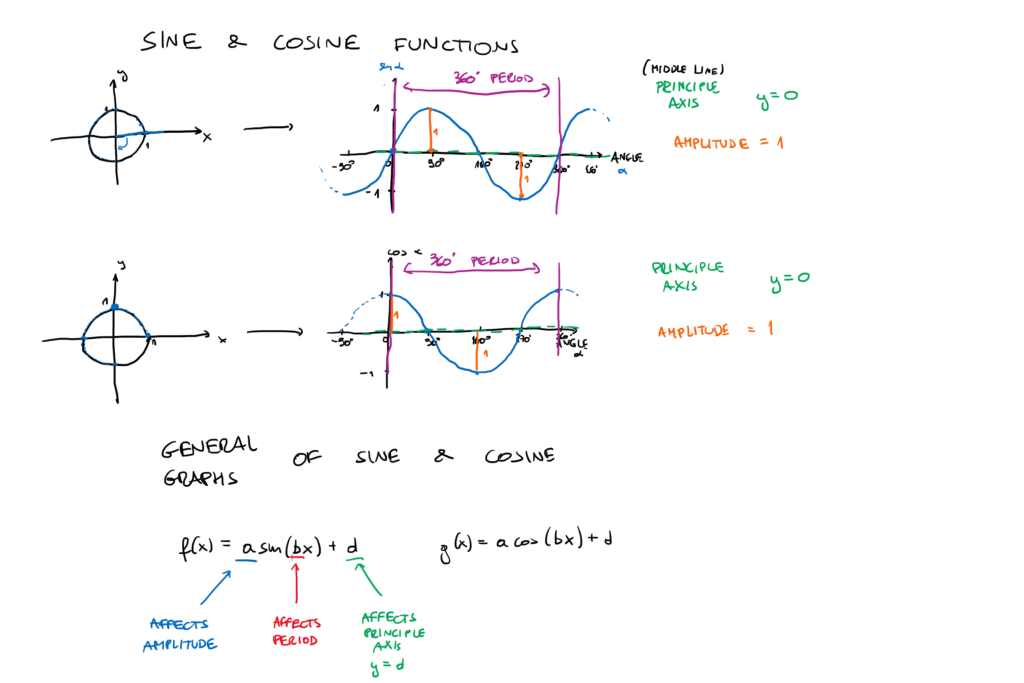 SINE & COSINE FUNCTIONS
y
1
1
x
sin α
360° PERIOD
1
1
1
-1
-90° 0 90° 180° 270° 360°
ANGLE
α
(MIDDLE LINE)
PRINCIPLE
AXIS
y=0
AMPLITUDE = 1
y
1
1
x
cos α
360° PERIOD
1
1
1
-1
-90° 0 90° 180° 270° 360°
ANGLE
α
PRINCIPLE
AXIS
y=0
AMPLITUDE = 1
GENERAL
GRAPHS OF SINE & COSINE
f(x) = a sin(bx) + d
g(x) = a cos(bx) + d
AFFECTS
AMPLITUDE
AFFECTS
PERIOD
AFFECTS
PRINCIPLE
AXIS
y=d